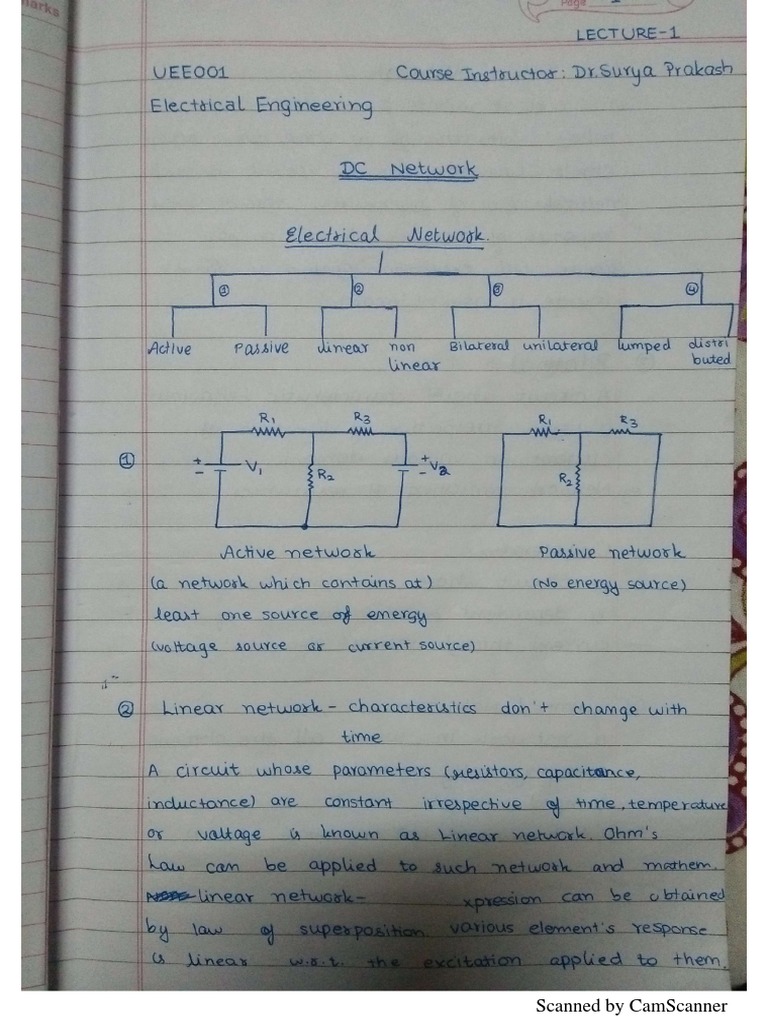 arks
Page
LECTURE-1
UEE001 Course Instructor: Dr. Surya Prakash
Electrical Engineering
DC Network
Electrical Network.
① ② ③ ④
Active Passive linear non linear Bilateral unilateral lumped distributed
① R1 R3 R1 R3
+ - V1 R2 + - V2 R2
Active network Passive network
(a network which contains at) (No energy source)
least one source of energy
(voltage source or current source)
② Linear network - characteristics don't change with
time
A circuit whose parameters (resistors, capacitance,
inductance) are constant irrespective of time, temperature
or voltage is known as Linear network. Ohm's
Law can be applied to such network and mathem.
linear network- xpression can be obtained
by law of superposition. various element's response
is linear w.r.t. the excitation applied to them.
Scanned by CamScanner